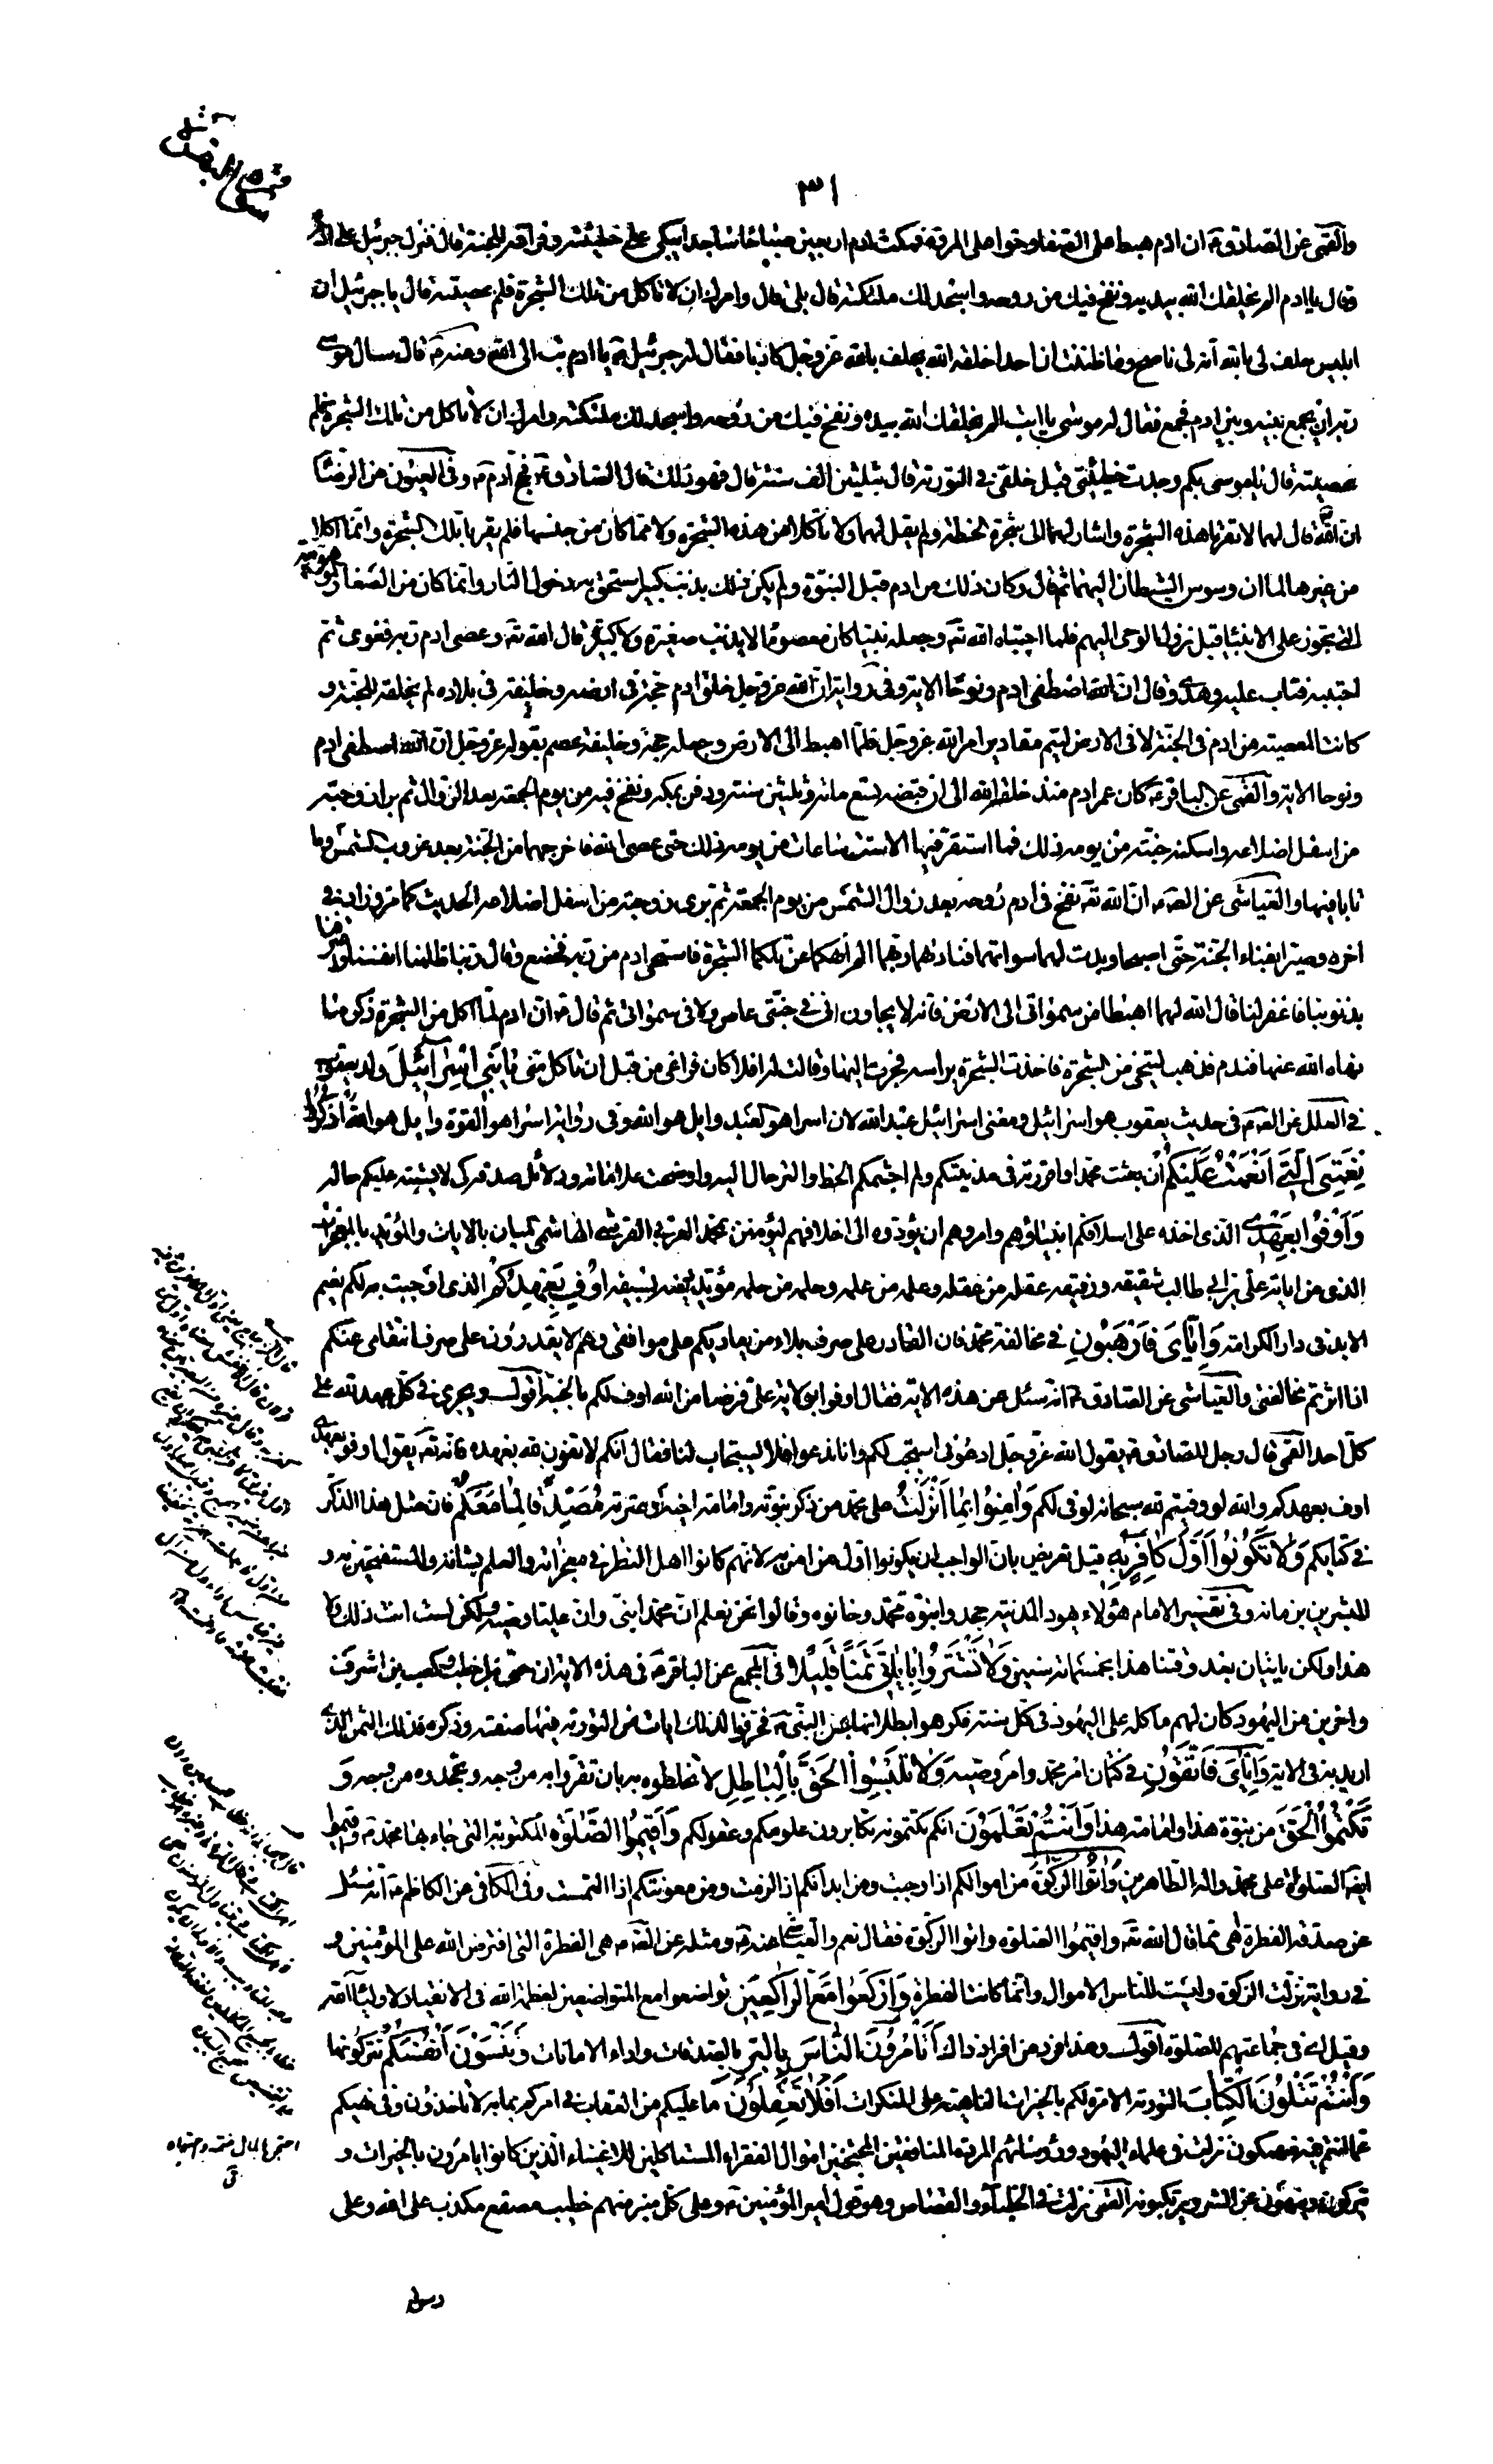 ٣١
والقمى عن الصادق ع ان ادم هبط على الصفا وحوا على المروة فمكث ادم اربعين صباحا ساجدا يبكى على خطيئته وفراقه للجنة قال فنزل جبرئيل على ادم
وقال يا ادم الم يخلقك الله بيديه ونفخ فيك من روحه واسجد لك ملئكته قال بلى قال وامرك ان لا تاكل من تلك الشجرة فلم عصيته قال يا جبرئيل ان
ابليس حلف لى بالله انه لى ناصح وما ظننت ان احدا خلقه الله يحلف بالله عز وجل كاذبا فقال له جبرئيل ع يا ادم تب الى الله وعنه ع قال سال موسى
ربه ان يجمع بينه وبين ادم فجمع فقال له موسى يا ابت الم يخلقك الله بيده ونفخ فيك من روحه واسجد لك ملئكته وامرك ان لا تاكل من تلك الشجرة فلم
عصيته قال يا موسى بكم وجدت خطيئتى قبل خلقى فى التورية قال بثلثين الف سنة قال فهو ذلك قال الصادق ع فحج ادم ع وفى العيون عن الرضا
ان الله قال لهما لا تقربا هذه الشجرة واشار لهما الى شجرة الحنطة ولم يقل لهما ولا تاكلا من هذه الشجرة ولا مما كان من جنسها فلم يقربا تلك الشجرة وانما اكلا
من غيرها لما ان وسوس الشيطان اليهما ثم قال وكان ذلك من ادم قبل النبوة ولم يكن ذلك بذنب كبير استحق به دخول النار وانما كان من الصغاير الموهوبة
التى تجوز على الانبيا قبل نزول الوحى اليهم فلما اجتباه الله تع وجعله نبيا كان معصوما لا يذنب صغيرة ولا كبيرة قال الله تع وعصى ادم ربه فغوى ثم
اجتبيه فتاب عليه وهدى وقال ان الله اصطفى ادم ونوحا الاية وفى رواية ان الله عز وجل خلق ادم حجة فى ارضه وخليفة فى بلاده لم يخلقه للجنة و
كانت المعصية من ادم فى الجنة لا فى الارض ليتم مقادير امر الله عز وجل فلما اهبط الى الارض وجعله حجة وخليفة عصم بقوله عز وجل ان الله اصطفى ادم
ونوحا الاية والقمى عن الباقر ع كان عمر ادم منذ خلقه الله الى ان قبضه تسع مائة وثلثين سنة ودفن بمكة ونفخ فيه من يوم الجمعة بعد الزوال ثم برا زوجته
من اسفل اضلاعه واسكنه جنته من يومه ذلك فما استقر فيها الا ست ساعات من يومه ذلك حتى عصى الله فاخرجهما من الجنة بعد غروب الشمس وما
باتا فيها والعياشى عن الص ع ان الله تع نفخ فى ادم روحه بعد زوال الشمس من يوم الجمعة ثم برى زوجته من اسفل اضلاعه الحديث كما مر وزاد فى
اخره وصيرا بفناء الجنة حتى اصبحا وبدت لهما سواتهما فنادهما ربهما الم انهكما عن تلكما الشجرة فاستحى ادم من ربه فخضع وقال ربنا ظلمنا انفسنا واعترفنا
بذنوبنا فاغفر لنا قال الله لهما اهبطا من سمواتى الى الارض فانه لا يجاورنى فى جنتى عاص ولا فى سمواتى ثم قال ع ان ادم لما اكل من الشجرة ذكر ما
نهاه الله عنها فندم فذهب ليتنحى من الشجرة فاخذت الشجرة براسه فجرته اليها وقالت له افلا كان فرارى من قبل ان تاكل منى يا بَنِى اِسْرائيلَ ولد يعقوب
فى العلل عن الص ع فى حديث يعقوب هو اسرائيل ومعنى اسرائيل عبد الله لان اسرا هو العبد وايل هو الله وفى رواية اسرا هو القوة وايل هو الله اُذْكُرُوا
نِعْمَتِىَ الَّتى اَنْعَمْتُ عَلَيْكُمْ ان بعثت محمدا واقررته فى مدينتكم ولم اجشمكم الحط والترحال اليه واوضحت علاماته ودلائل صدقه كى لا يشتبه عليكم حاله
وَاَوْفُوا بِعَهْدى الذى اخذه على اسلافكم انبياؤهم وامروهم ان يؤدوه الى اخلافهم ليؤمنن بمحمد العربى القرشى الهاشمى المبان بالايات والمؤيد بالمعجزات
الذى من اياته على بن ابى طالب شقيقه ورفيقه عقله من عقله وعلمه من علمه وحلمه من حلمه مؤيد دينه بسيفه اُوفِ بِعَهْدِكُمْ الذى اوجبت به لكم نعيم
الابد فى دار الكرامة وَاِيّاىَ فَارْهَبُونِ فى مخالفة محمد فان القادر على صرف بلاء من يعاديكم على موافقتى وهم لا يقدرون على صرف انتقامى عنكم
اذا اثرتم مخالفتى والعياشى عن الصادق ع انه سئل عن هذه الاية فقال اوفوا بولاية على فرضا من الله اوف لكم بالجنة اقول ويجرى فى كل عهد لله على
كل احد القمى قال رجل للصادق ع يقول الله عز وجل ادعونى استجب لكم وانا ندعوا فلا يستجاب لنا فقال انكم لا تفون لله بعهده فانه تع يقول اوفوا بعهدى
اوف بعهدكم والله لو وفيتم لله سبحانه لوفى لكم وَامِنُوا بِما اَنْزَلْتُ على محمد من ذكر نبوته وامامة اخيه وعترته مُصَدِّقًا لِما مَعَكُمْ فان مثل هذا الذكر
فى كتابكم وَلا تَكُونُوا اَوَّلَ كافِرٍ بِهِ قيل تعريض بان الواجب ان يكونوا اول من امن به لانهم كانوا اهل النظر فى معجزاته والعلم بشانه والمستفتحين به و
المبشرين بزمانه وفى تفسير الامام هؤلاء يهود المدينة جحدوا نبوة محمد وخانوه وقالوا نحن نعلم ان محمدا نبى وان عليا وصيه ولكن لست انت ذلك ولا
هذا ولكن ياتيان بعد وقتنا هذا بخمسمائة سنين وَلا تَشْتَرُوا بِاياتى ثَمَنًا قَليلًا فى المجمع عن الباقر ع فى هذه الاية ان حيى بن اخطب وكعب بن اشرف
واخرين من اليهود كان لهم ماكلة على اليهود فى كل سنة فكرهوا بطلانها بامر النبى ص فحرفوا لذلك ايات من التورية فيها صفته وذكره فذلك الثمن الذى
اريد به فى الاية وَاِيّاىَ فَاتَّقُونِ فى كتمان امر محمد وامر وصيه وَلا تَلْبِسُوا الْحَقَّ بِالْباطِلِ لا تخلطوه به بان تقروا به من وجه وتجحدوه من وجه وَ
تَكْتُمُوا الْحَقَّ من نبوة هذا وامامة هذا وَاَنْتُمْ تَعْلَمُونَ انكم تكتمونه تكابرون علومكم وعقولكم وَاَقيمُوا الصَّلوةَ المكتوبة التى جاء بها محمد ص واقيموا
ايضا الصلوة على محمد واله الطاهرين وَاتُوا الزَّكوةَ من اموالكم اذا وجبت ومن ابدانكم اذا لزمت ومن معونتكم اذا التمست وفى الكافى عن الكاظم ع انه سئل
عن صدقة الفطرة اهى مما قال الله تع واقيموا الصلوة واتوا الزكوة فقال نعم والعياشى عنه ع ومثله عن الص ع هى الفطرة التى افترض الله على المؤمنين و
فى رواية نزلت الزكوة وليست للناس الاموال وانما كانت الفطرة وَارْكَعُوا مَعَ الرّاكِعينَ تواضعوا مع المتواضعين لعظمة الله فى الانقياد لاولياء الله
وقيل اى فى جماعتهم للصلوة اقول وهذا فرد من افراد ذاك اَتَاْمُرُونَ النّاسَ بِالْبِرِّ بالصدقات واداء الامانات وَتَنْسَوْنَ اَنْفُسَكُمْ تتركونها
وَاَنْتُمْ تَتْلُونَ الْكِتابَ التورية الامرة لكم بالخيرات الناهية عن المنكرات اَفَلا تَعْقِلُونَ ما عليكم من العقاب فى امركم بما به لا تاخذون وفى نهيكم
عما انتم فيه منهمكون نزلت فى علماء اليهود ورؤسائهم المردة المنافقين المحتجنين اموال الفقراء المستاكلين للاغنياء الذين كانوا يامرون بالخير و
يتركونه وينهون عن الشر ويرتكبونه القمى نزلت فى الخطباء والقصاص وهو قول امير المؤمنين ع وعلى كل منبر منهم خطيب مصقع يكذب على الله وعلى
رسوله